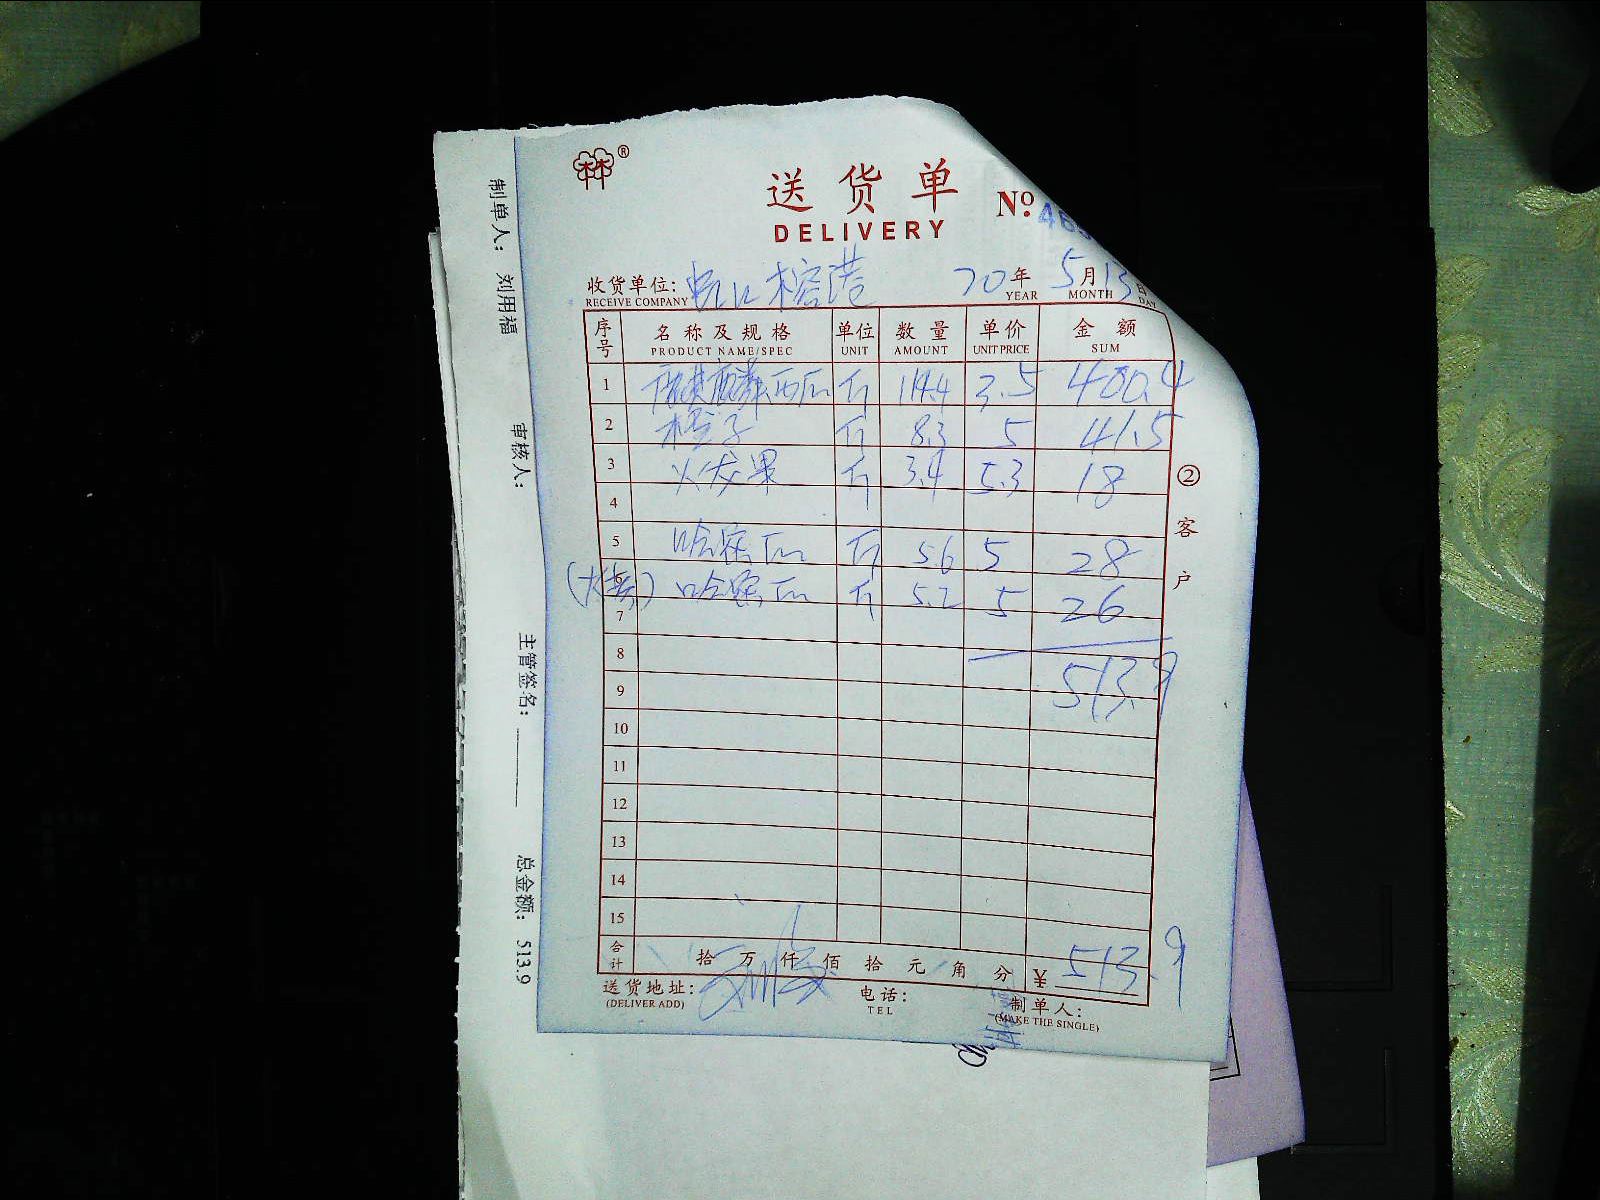 送货单 №:46
DELIVERY
收货单位: 榕港 20年 5月13日
RECEIVE COMPANY YEAR MONTH DAY
序号 名称及规格 单位 数量 单价 金额
PRODUCT NAME/SPEC UNIT AMOUNT UNIT PRICE SUM
1 麒麟西瓜 斤 114.4 3.5 400.4
2 橙子 斤 8.3 5 41.5
3 火龙果 斤 3.4 5.3 18
4
5 哈密瓜 斤 5.6 5 28
6 哈密瓜 斤 5.2 5 26
7
8 513.9
9
10
11
12
13
14
15
合计 拾 万 仟 佰 拾 元 角 分 ¥ 513.9
送货地址: 电话: 制单人:
(DELIVER ADD) TEL (MAKE THE SINGLE)
②客户
制单人: 刘用福 审核人: 主管签名: 总金额: 513.9